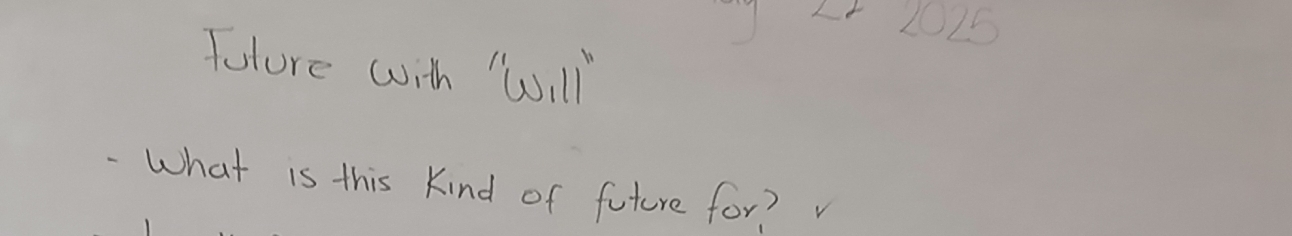 2025
Future with "Will"
- What is this kind of future for? ✓